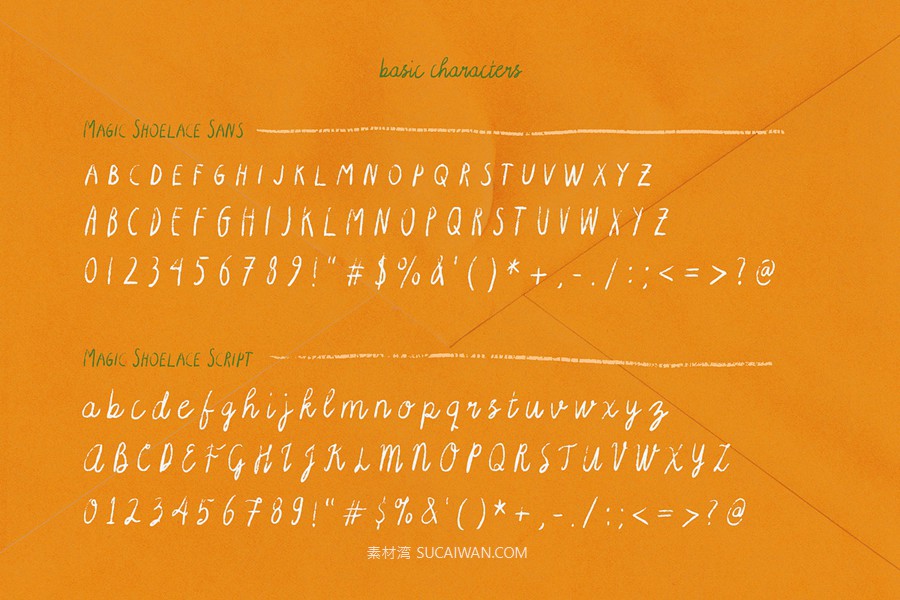 basic characters
Magic Shoelace Sans
A B C D E F G H I J K L M N O P Q R S T U V W X Y Z
A B C D E F G H I J K L M N O P Q R S T U V W X Y Z
0 1 2 3 4 5 6 7 8 9 ! " # $ % & ' ( ) * + , - . / : ; < = > ? @
Magic Shoelace Script
a b c d e f g h i j k l m n o p q r s t u v w x y z
A B C D E F G H I J K L M N O P Q R S T U V W X Y Z
0 1 2 3 4 5 6 7 8 9 ! " # $ % & ' ( ) * + , - . / : ; < = > ? @
素材湾 SUCAIWAN.COM